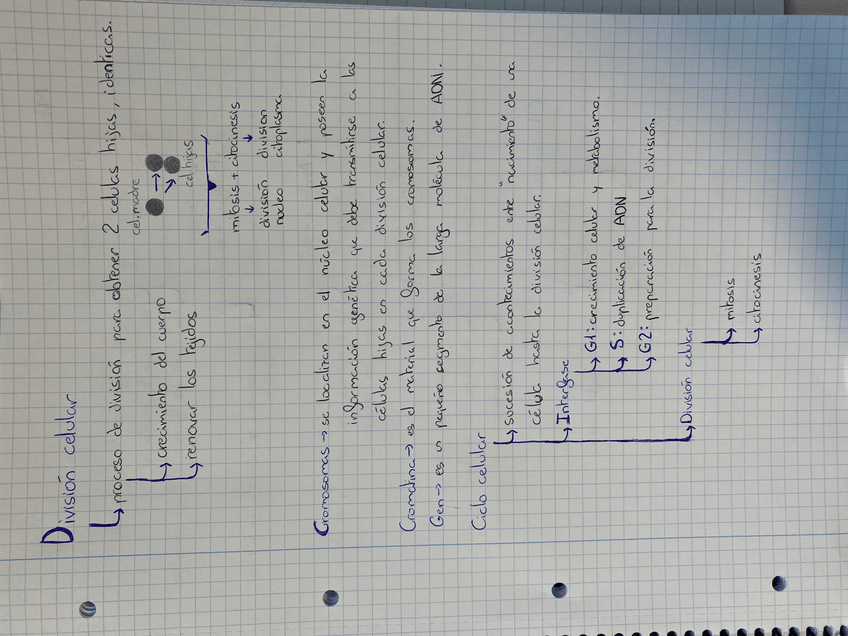 División celular
proceso de división para obtener 2 celulas hijas, identicas.
crecimiento del cuerpo
renovar los tejidos
cel.madre
cel.hijas
mitosis + citocinesis
división división
núcleo citoplasma
Cromosomas → se localizan en el núcleo celular y poseen la
información genética que debe transmitirse a las
células hijas en cada división celular.
Cromatina → es el material que forma los cromosomas.
Gen → es un pequeño segmento de la larga molécula de ADN.
Ciclo celular
sucesión de acontecimientos entre "nacimiento" de una
célula hasta la división celular.
Interfase
G1: crecimiento celular y metabolismo.
S: duplicación de ADN
G2: preparación para la división.
División celular
mitosis
citocinesis